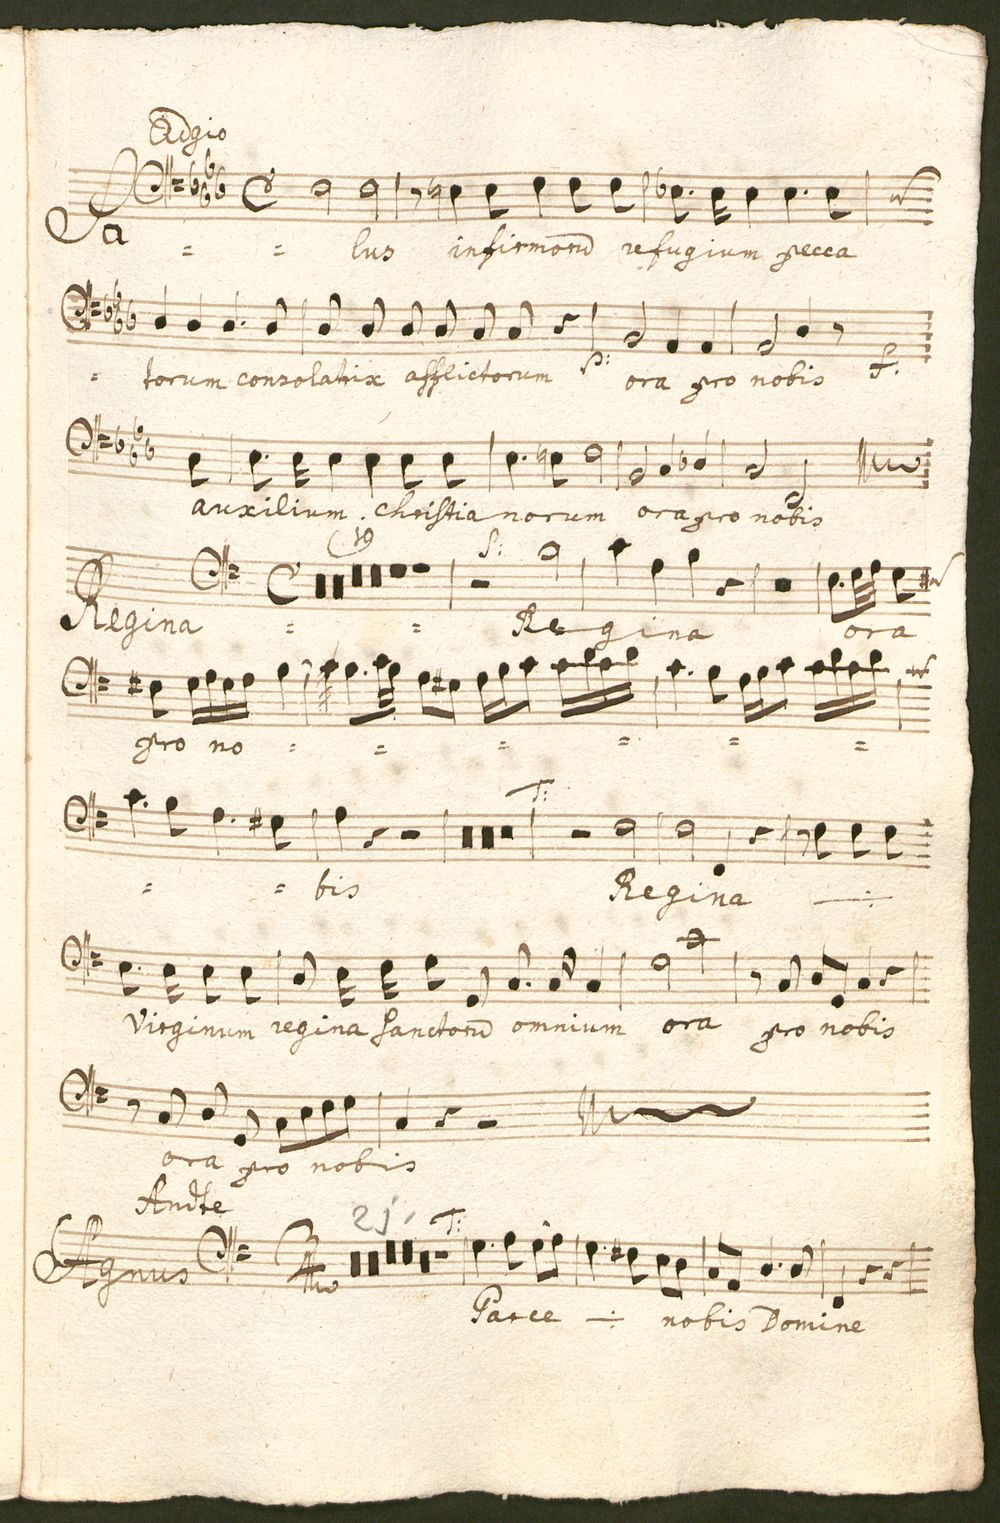 Adgio
Sa = = lus infirmorũ refugium pecca
= torum consolatrix afflictorum p: ora pro nobis f:
auxilium christianorum ora pro nobis
19 S:
Regina = = Regina ora
pro no = = = = = =
T:
= = bis Regina
Virginum regina sanctorũ omnium ora pro nobis
ora pro nobis
Andte
25 T:
Agnus
Parce nobis Domine